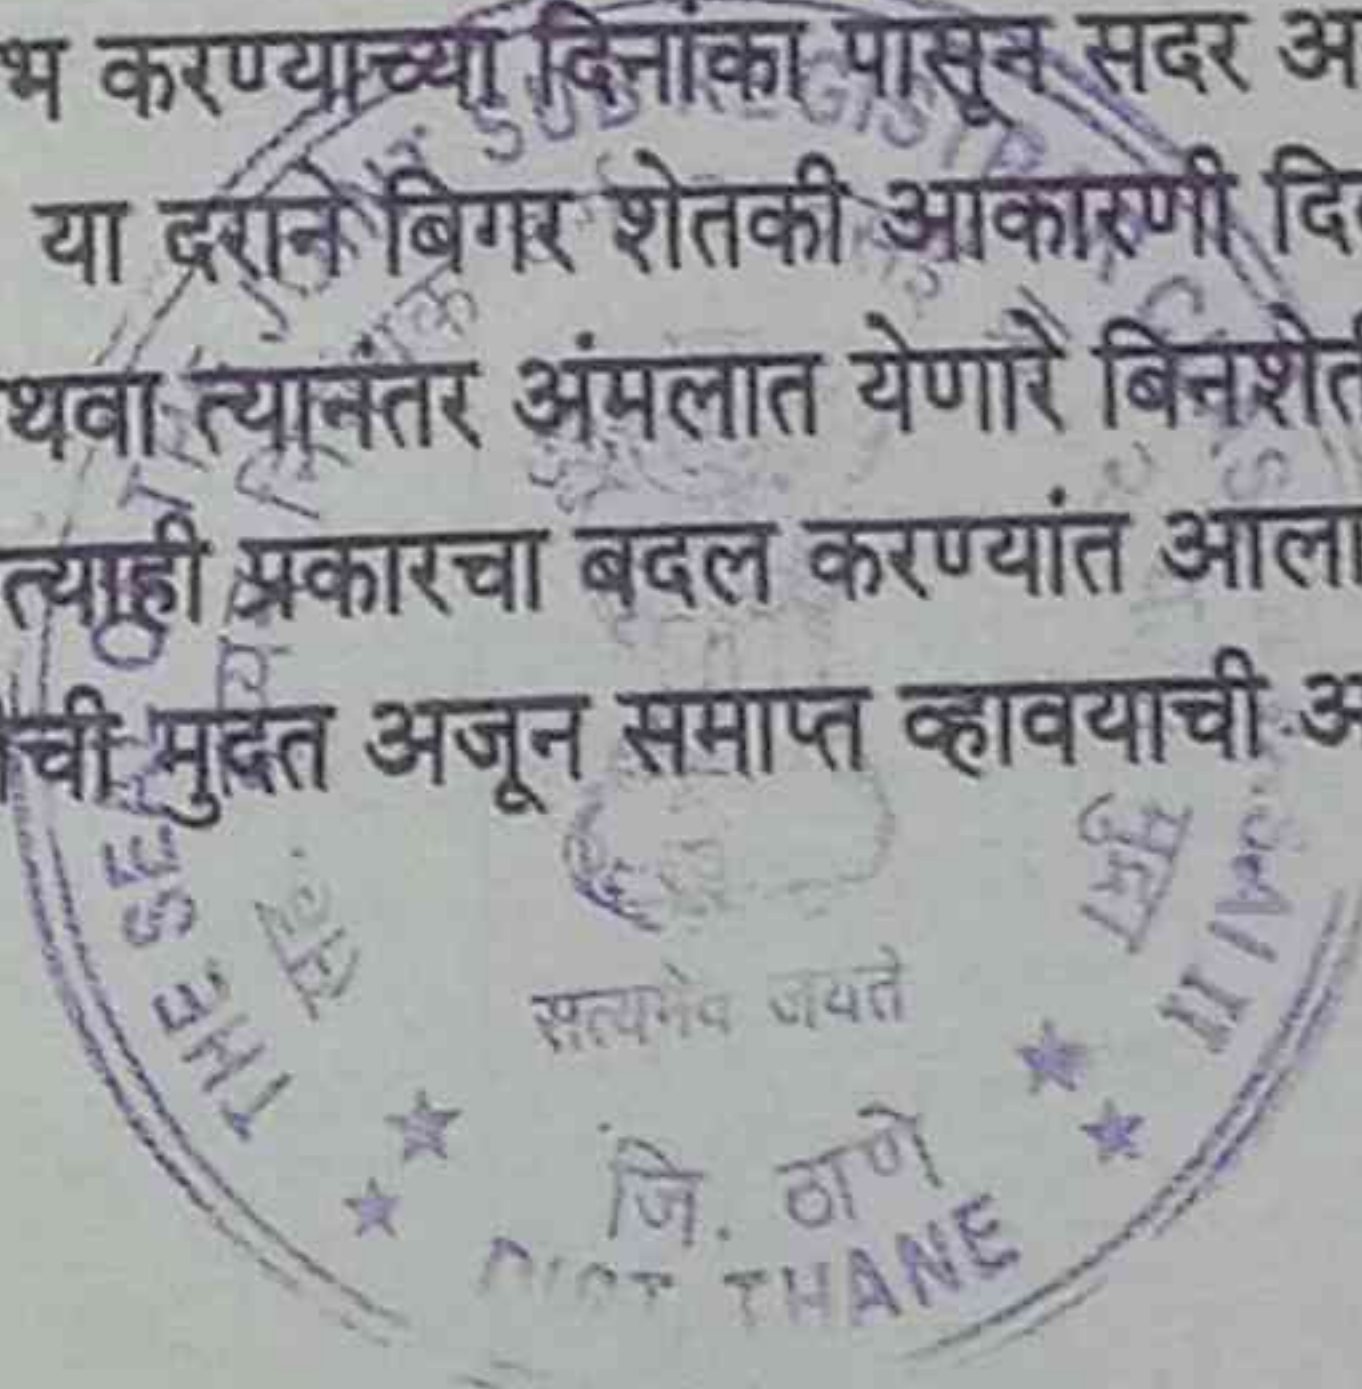 भ करण्याच्या दिनांका पासून सदर अ
या दराने बिगर शेतकी आकारणी दि
थवा त्यानंतर अंमलात येणारे बिनशेत
त्याही प्रकारचा बदल करण्यांत आला
ची मुदत अजून समाप्त व्हावयाची अ
THE SEAL OF
सत्यमेव जयते
जि. ठाणे
DIST THANE